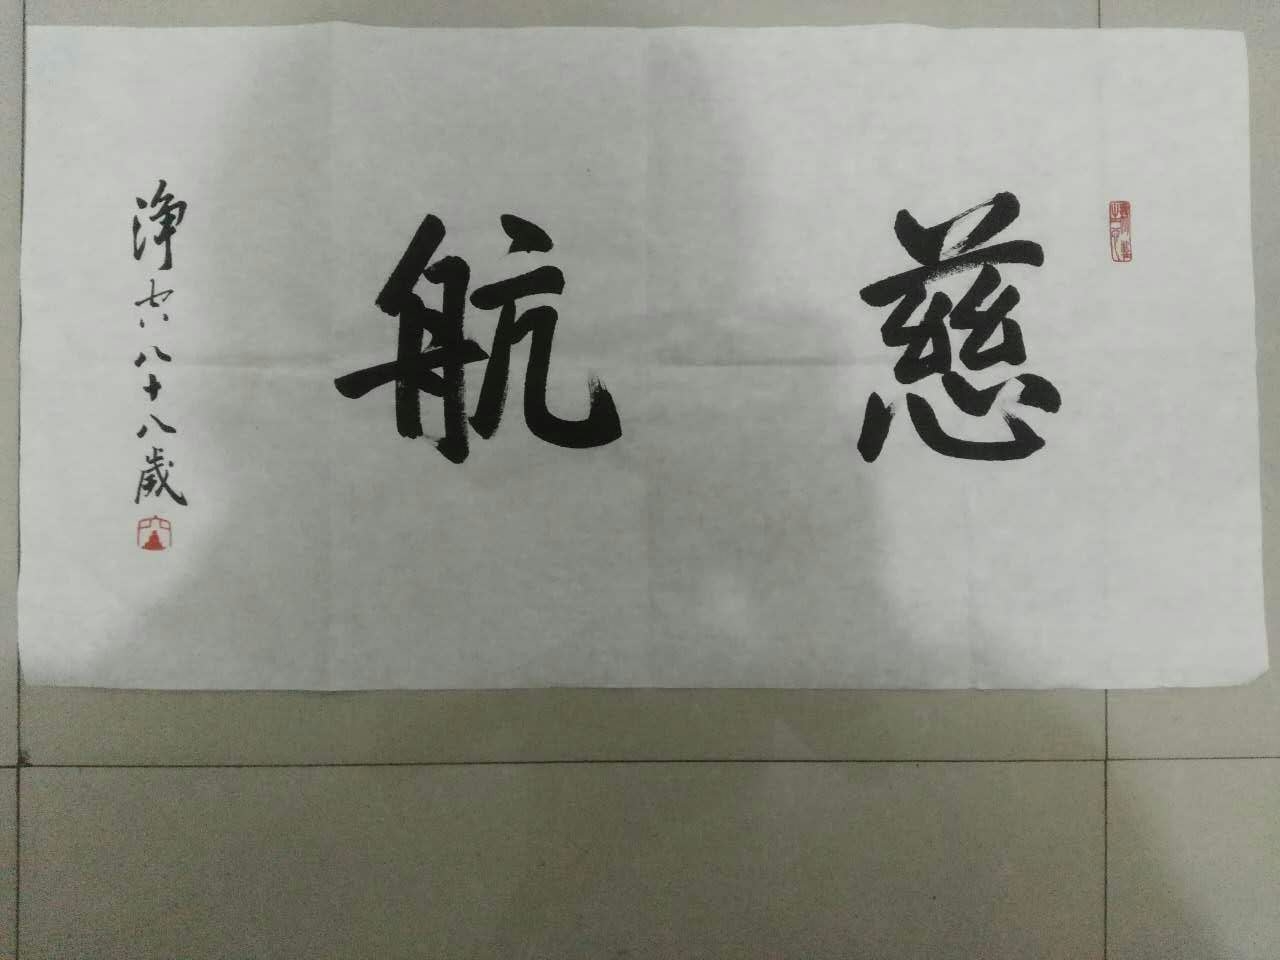 慈航
淨空八十八歲